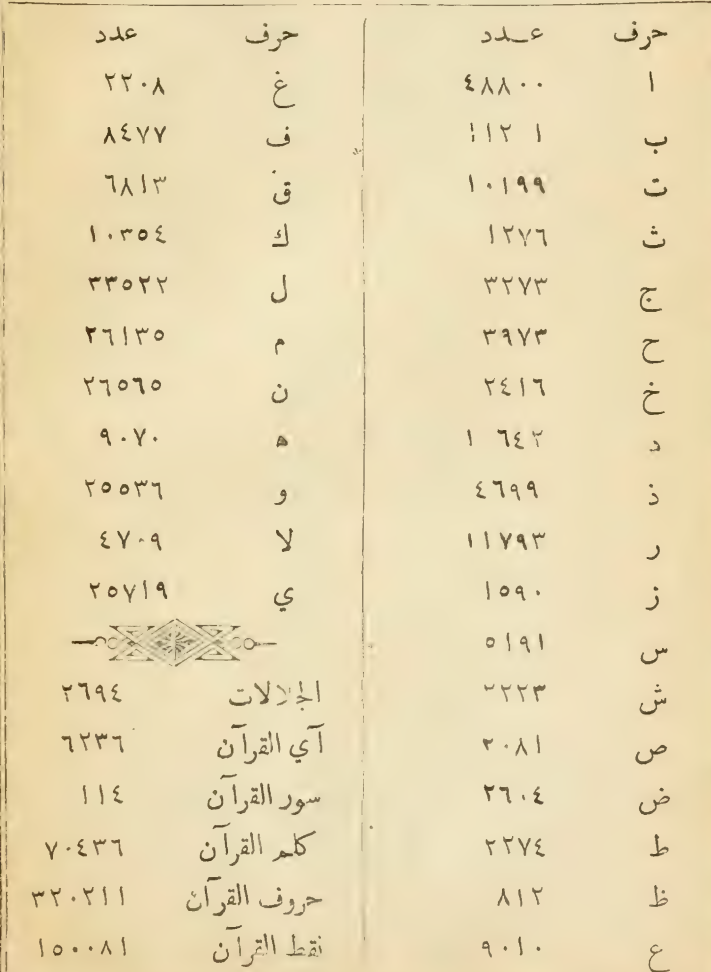 حرف عــدد
ا ٤٨٨٠٠
ب
ت ١٠١٩٩
ث ١٢٧٦
ج ٣٢٧٣
ح ٣٩٧٣
خ ٢٤١٦
د ١ ٦٤٢
ذ ٤٦٩٩
ر ١١٧٩٣
ز ١٥٩٠
س ٥١٩١
ش
ص ٢٠٨١
ض ٢٦٠٤
ط ٢٢٧٤
ظ ٨١٢
ع ٩٠١٠
حرف عدد
غ ٢٢٠٨
ف ٨٤٧٧
ق ٦٨١٣
ك ١٠٣٥٤
ل ٣٣٥٢٢
م ٢٦١٣٥
ن ٢٦٥٦٥
ه ٩٠٧٠
و ٢٥٥٣٦
لا ٤٧٠٩
ي ٢٥٧١٩
الجلالات ٢٦٩٤
آي القرآن ٦٢٣٦
سور القرآن ١١٤
كلم القرآن ٧٠٤٣٦
حروف القرآن ٣٢٠٢١١
نقط القرآن ١٥٠٠٨١